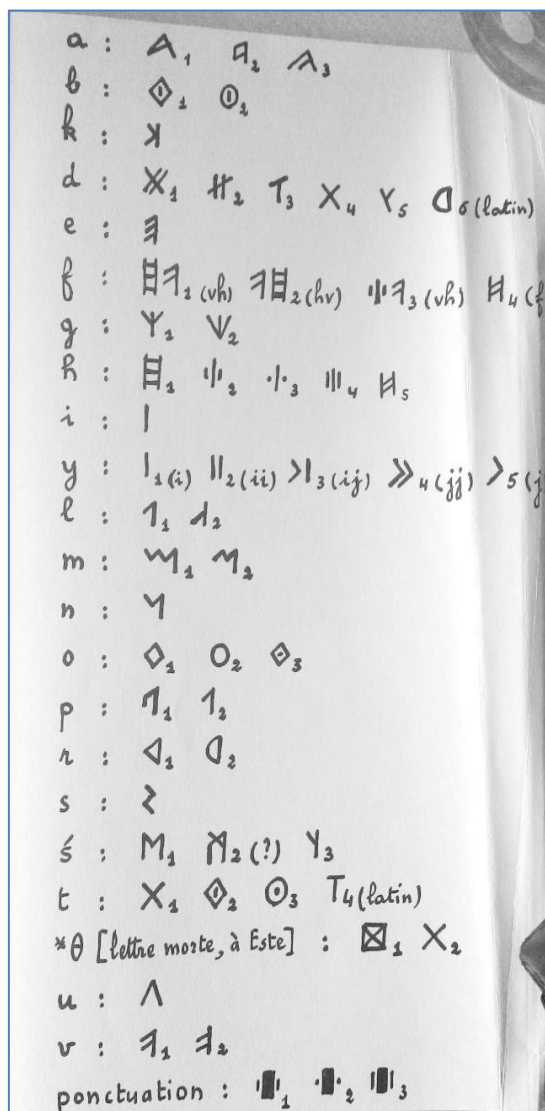 a : A₁ ᖳ₂ A₃
b : ◇₁ ʘ₂
k : ꓘ
d : X₁ H₂ T₃ X₄ Y₅ D₆(latin)
e : Ǝ
f : 日ꟻ₁(vh) ꟻ日₂(hv) ·|·ꟻ₃(vh) H₄(f
g : Ψ₁ V₂
h : 日₁ ı|ı₂ ·|·₃ |||₄ H₅
i : |
y : |₁(i) ||₂(ii) >|₃(ij) >>₄(jj) >₅(j
l : 1₁ ⅄₂
m : M₁ M₂
n : И
o : ◇₁ O₂ ◇₃
p : 1₁ 1₂
r : ◁₁ ᗡ₂
s : Ƨ
ś : M₁ M₂(?) Y₃
t : X₁ ◇₂ ⊙₃ T₄(latin)
*θ [lettre morte, à Este] : ⊠₁ X₂
u : Λ
v : ꟻ₁ ꟻ₂
ponctuation : ı▮ı₁ ·▮·₂ |▮|₃